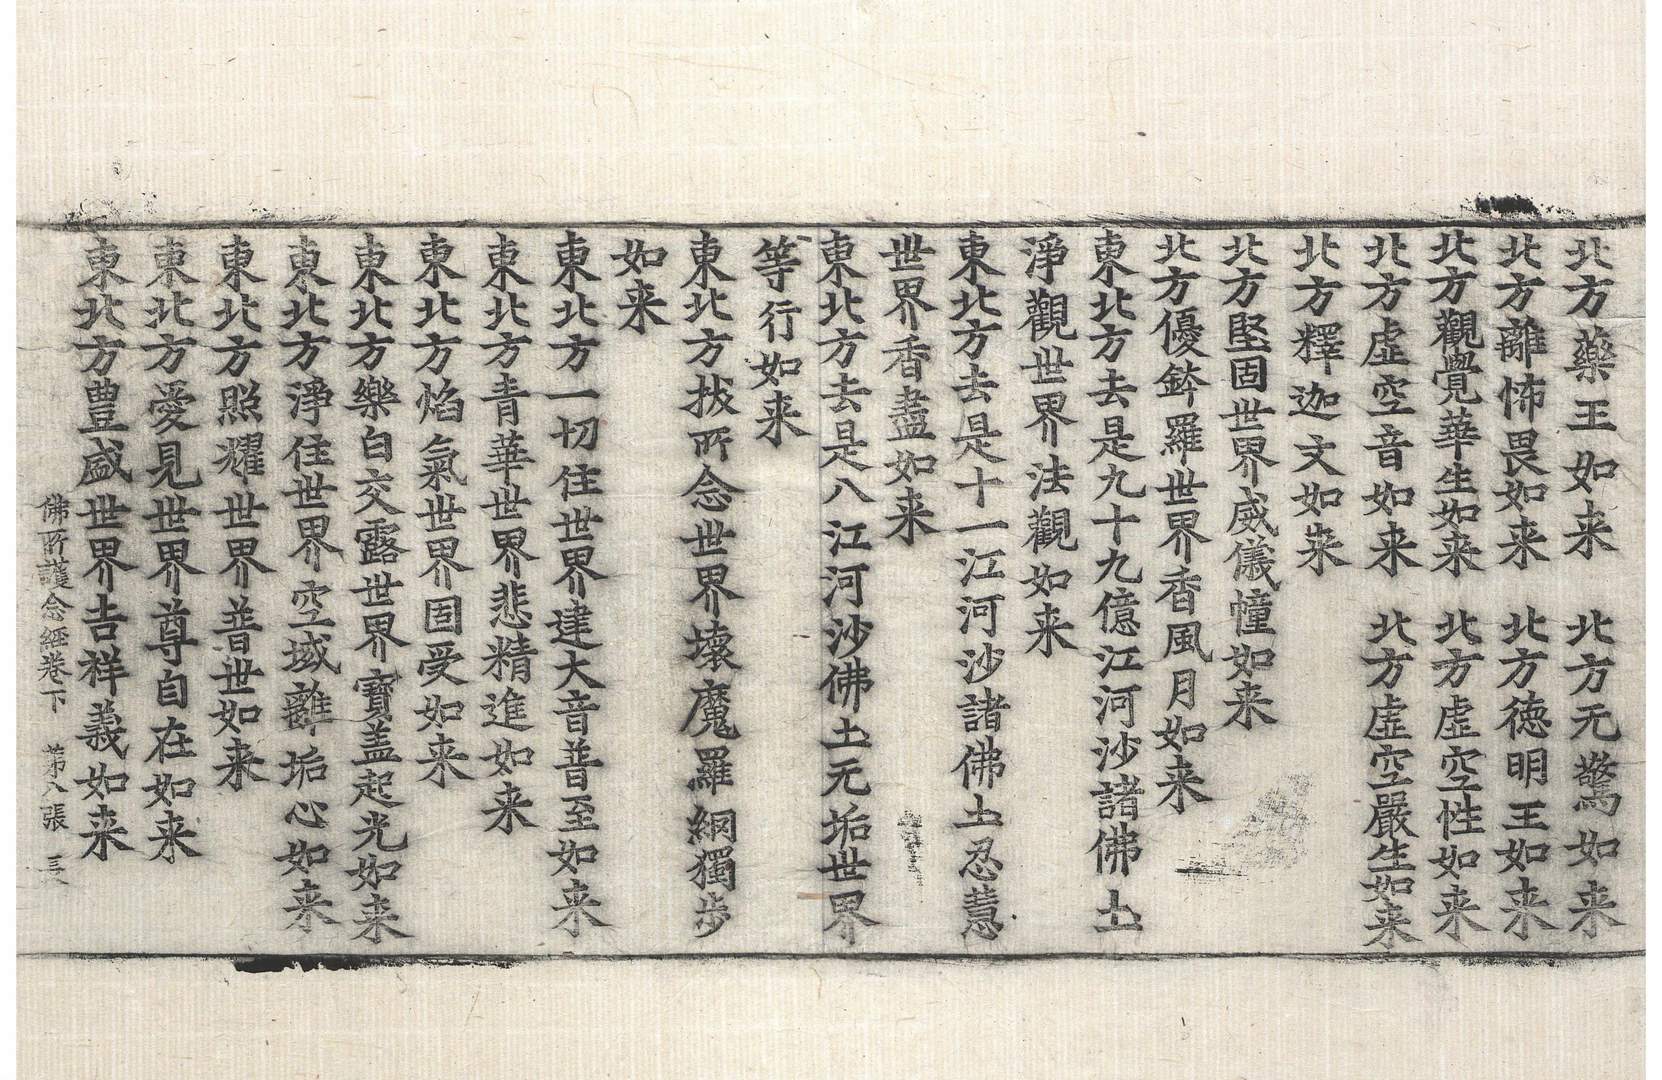 北方藥王如来　北方无驚如来
北方離怖畏如来　北方德明王如来
北方觀覺華生如来　北方虛空性如来
北方虛空音如来　北方虛空嚴生如来
北方釋迦文如来
北方堅固世界威儀幢如来
北方優鉢羅世界香風月如来
東北方去是九十九億江河沙諸佛土
淨觀世界法觀如来
東北方去是十一江河沙諸佛土忍慧
世界香盡如来
東北方去是八江河沙佛土无垢世界
等行如来
東北方拔所念世界壞魔羅網獨步
如来
東北方一切住世界建大音普至如来
東北方青華世界悲精進如来
東北方焰氣世界固受如来
東北方樂白交露世界寶盖起光如来
東北方淨住世界空域離垢心如来
東北方照耀世界普世如来
東北方愛見世界尊自在如来
東北方豊盛世界吉祥義如来
佛所護念經卷下　第八張　長